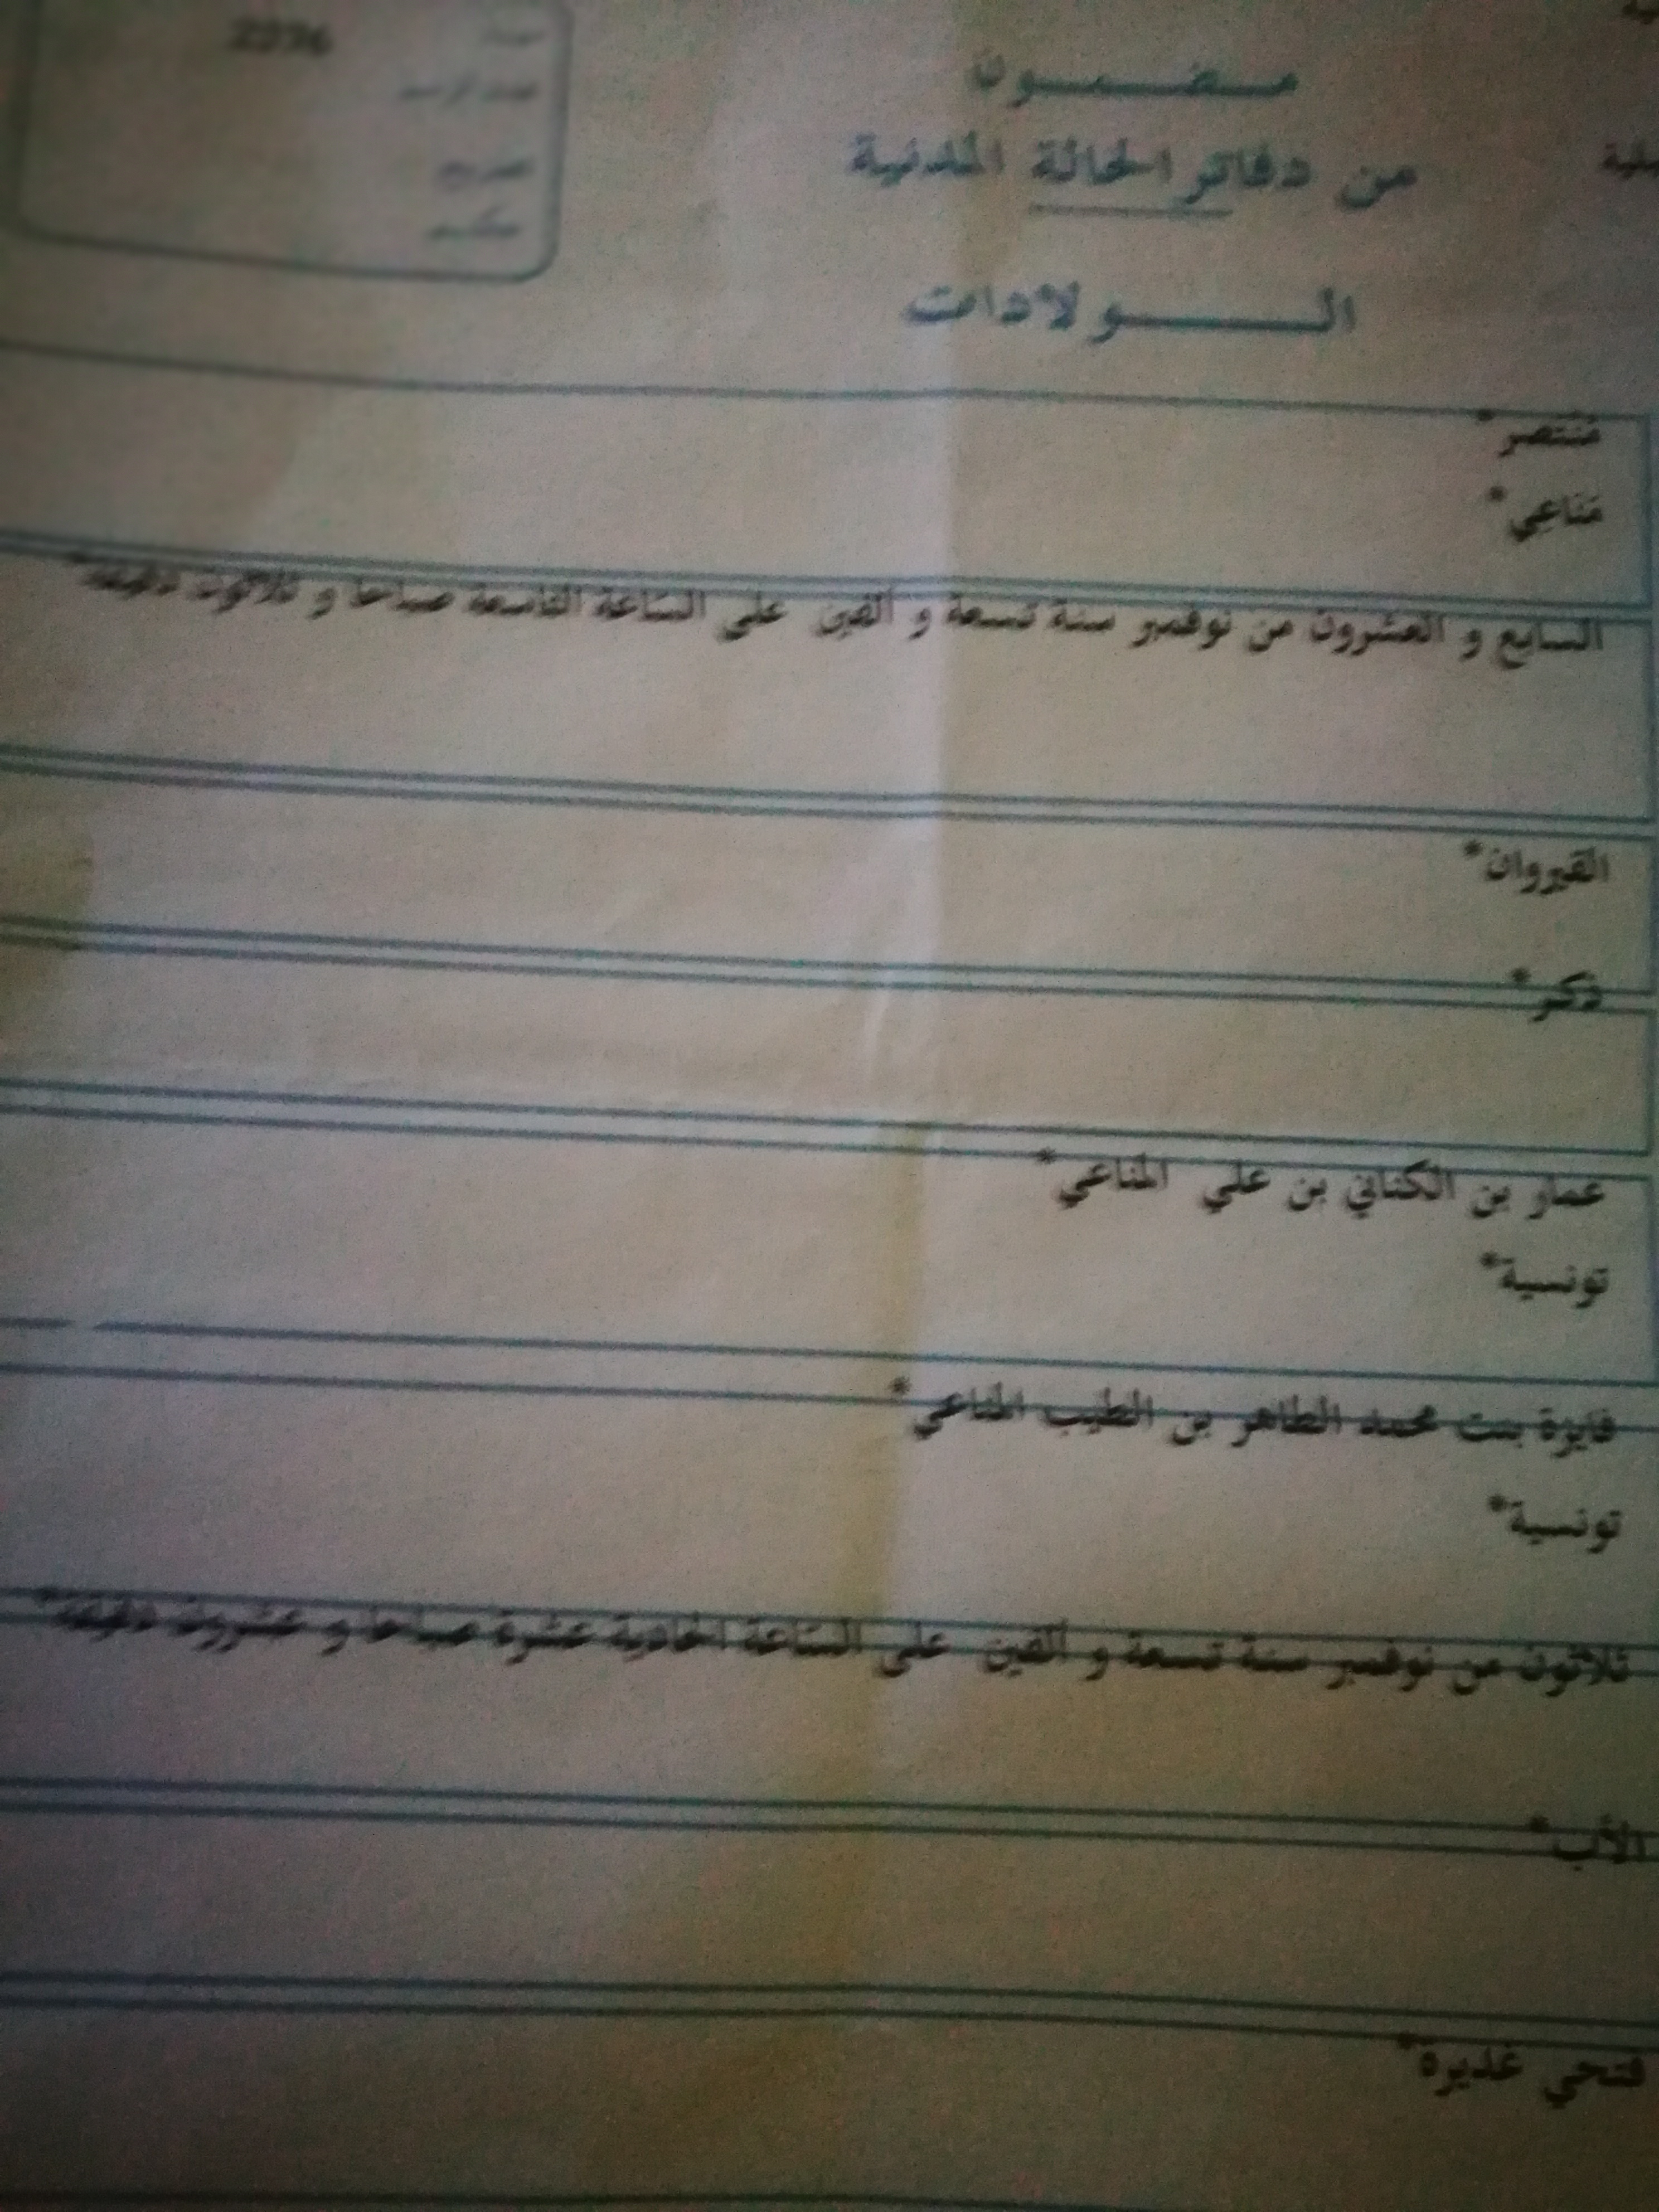 مضمون
من دفاتر الحالة المدنية
الولادات
2276
مُنتصر*
مَنَاعِي*
السابع و العشرون من نوفمبر سنة تسعة و ألفين على السّاعة التاسعة صباحا و ثلاثون دقيقة*
القيروان*
ذكر*
عمار بن الكناني بن علي المناعي*
تونسية*
فايزة بنت محمد الطاهر بن الطيب المناعي*
تونسية*
ثلاثون من نوفمبر سنة تسعة و ألفين على السّاعة الحادية عشرة صباحا و عشرون دقيقة*
الأب*
فتحي غديره*